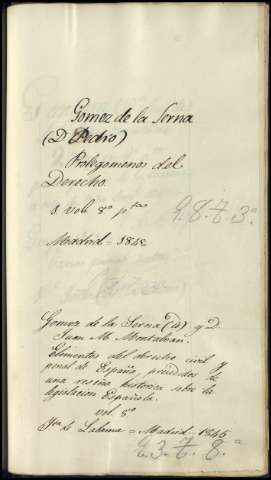 Gomez de la Serna
(D. Pedro)
Prolegomenos del
Derecho.
1. vol. 8º ptas
Madrid = 184
Gomez de la Serna (d) y D.
Juan M. Montalban.
Elementos del derecho civil y
penal de España, precedidos de
una reseña historica sobre la
legislacion Española.
vol. 8º
de Lalama = Madrid = 1845